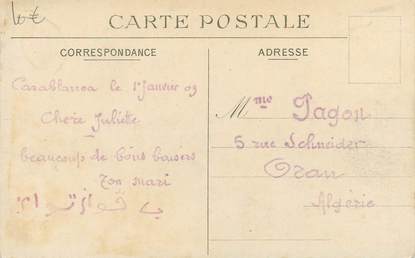 10€
CARTE POSTALE
CORRESPONDANCE
ADRESSE
Casablanca le 1er Janvier 09
Chère Juliette
beaucoup de bons baisers
Ton mari
Mme Pagon
5 rue Schneider
Oran
Algérie